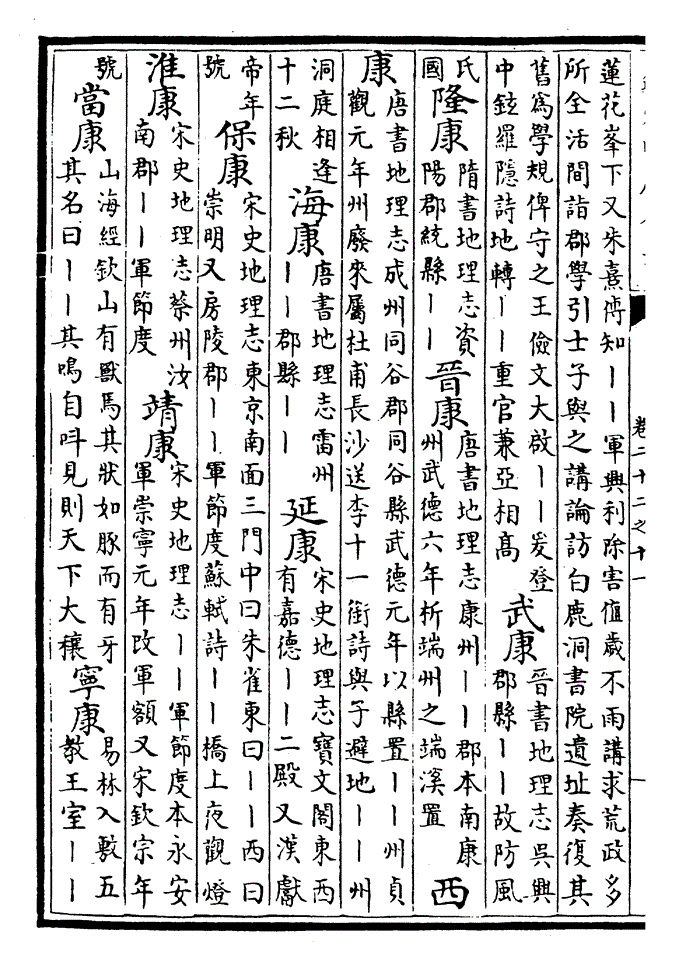 蓮花峯下又朱熹傳知丨丨軍興利除害值歲不雨講求荒政多
所全活間詣郡學引士子與之講論訪白鹿洞書院遺址奏復其
舊爲學規俾守之王儉文大啟丨丨爰登
中鉉羅隱詩地轉丨丨重官兼亞相高
武康
晉書地理志吳興
郡縣丨丨故防風
氏
國
隆康
隋書地理志資
陽郡統縣丨丨
晉康
唐書地理志康州丨丨郡本南康
州武德六年析端州之端溪置
西
康
唐書地理志成州同谷郡同谷縣武德元年以縣置丨丨州貞
觀元年州廢來屬杜甫長沙送李十一銜詩與子避地丨丨州
洞庭相逢
十二秋
海康
唐書地理志雷州
丨丨郡縣丨丨
延康
宋史地理志寶文閣東西
有嘉德丨丨二殿又漢獻
帝年
號
保康
宋史地理志東京南面三門中曰朱雀東曰丨丨西曰
崇明又房陵郡丨丨軍節度蘇軾詩丨丨橋上夜觀燈
淮康
宋史地理志蔡州汝
南郡丨丨軍節度
靖康
宋史地理志丨丨軍節度本永安
軍崇寧元年改軍額又宋欽宗年
號
當康
山海經欽山有獸焉其狀如豚而有牙
其名曰丨丨其鳴自叫見則天下大穰
寧康
易林入敷五
教王室丨丨
卷二十二之十一